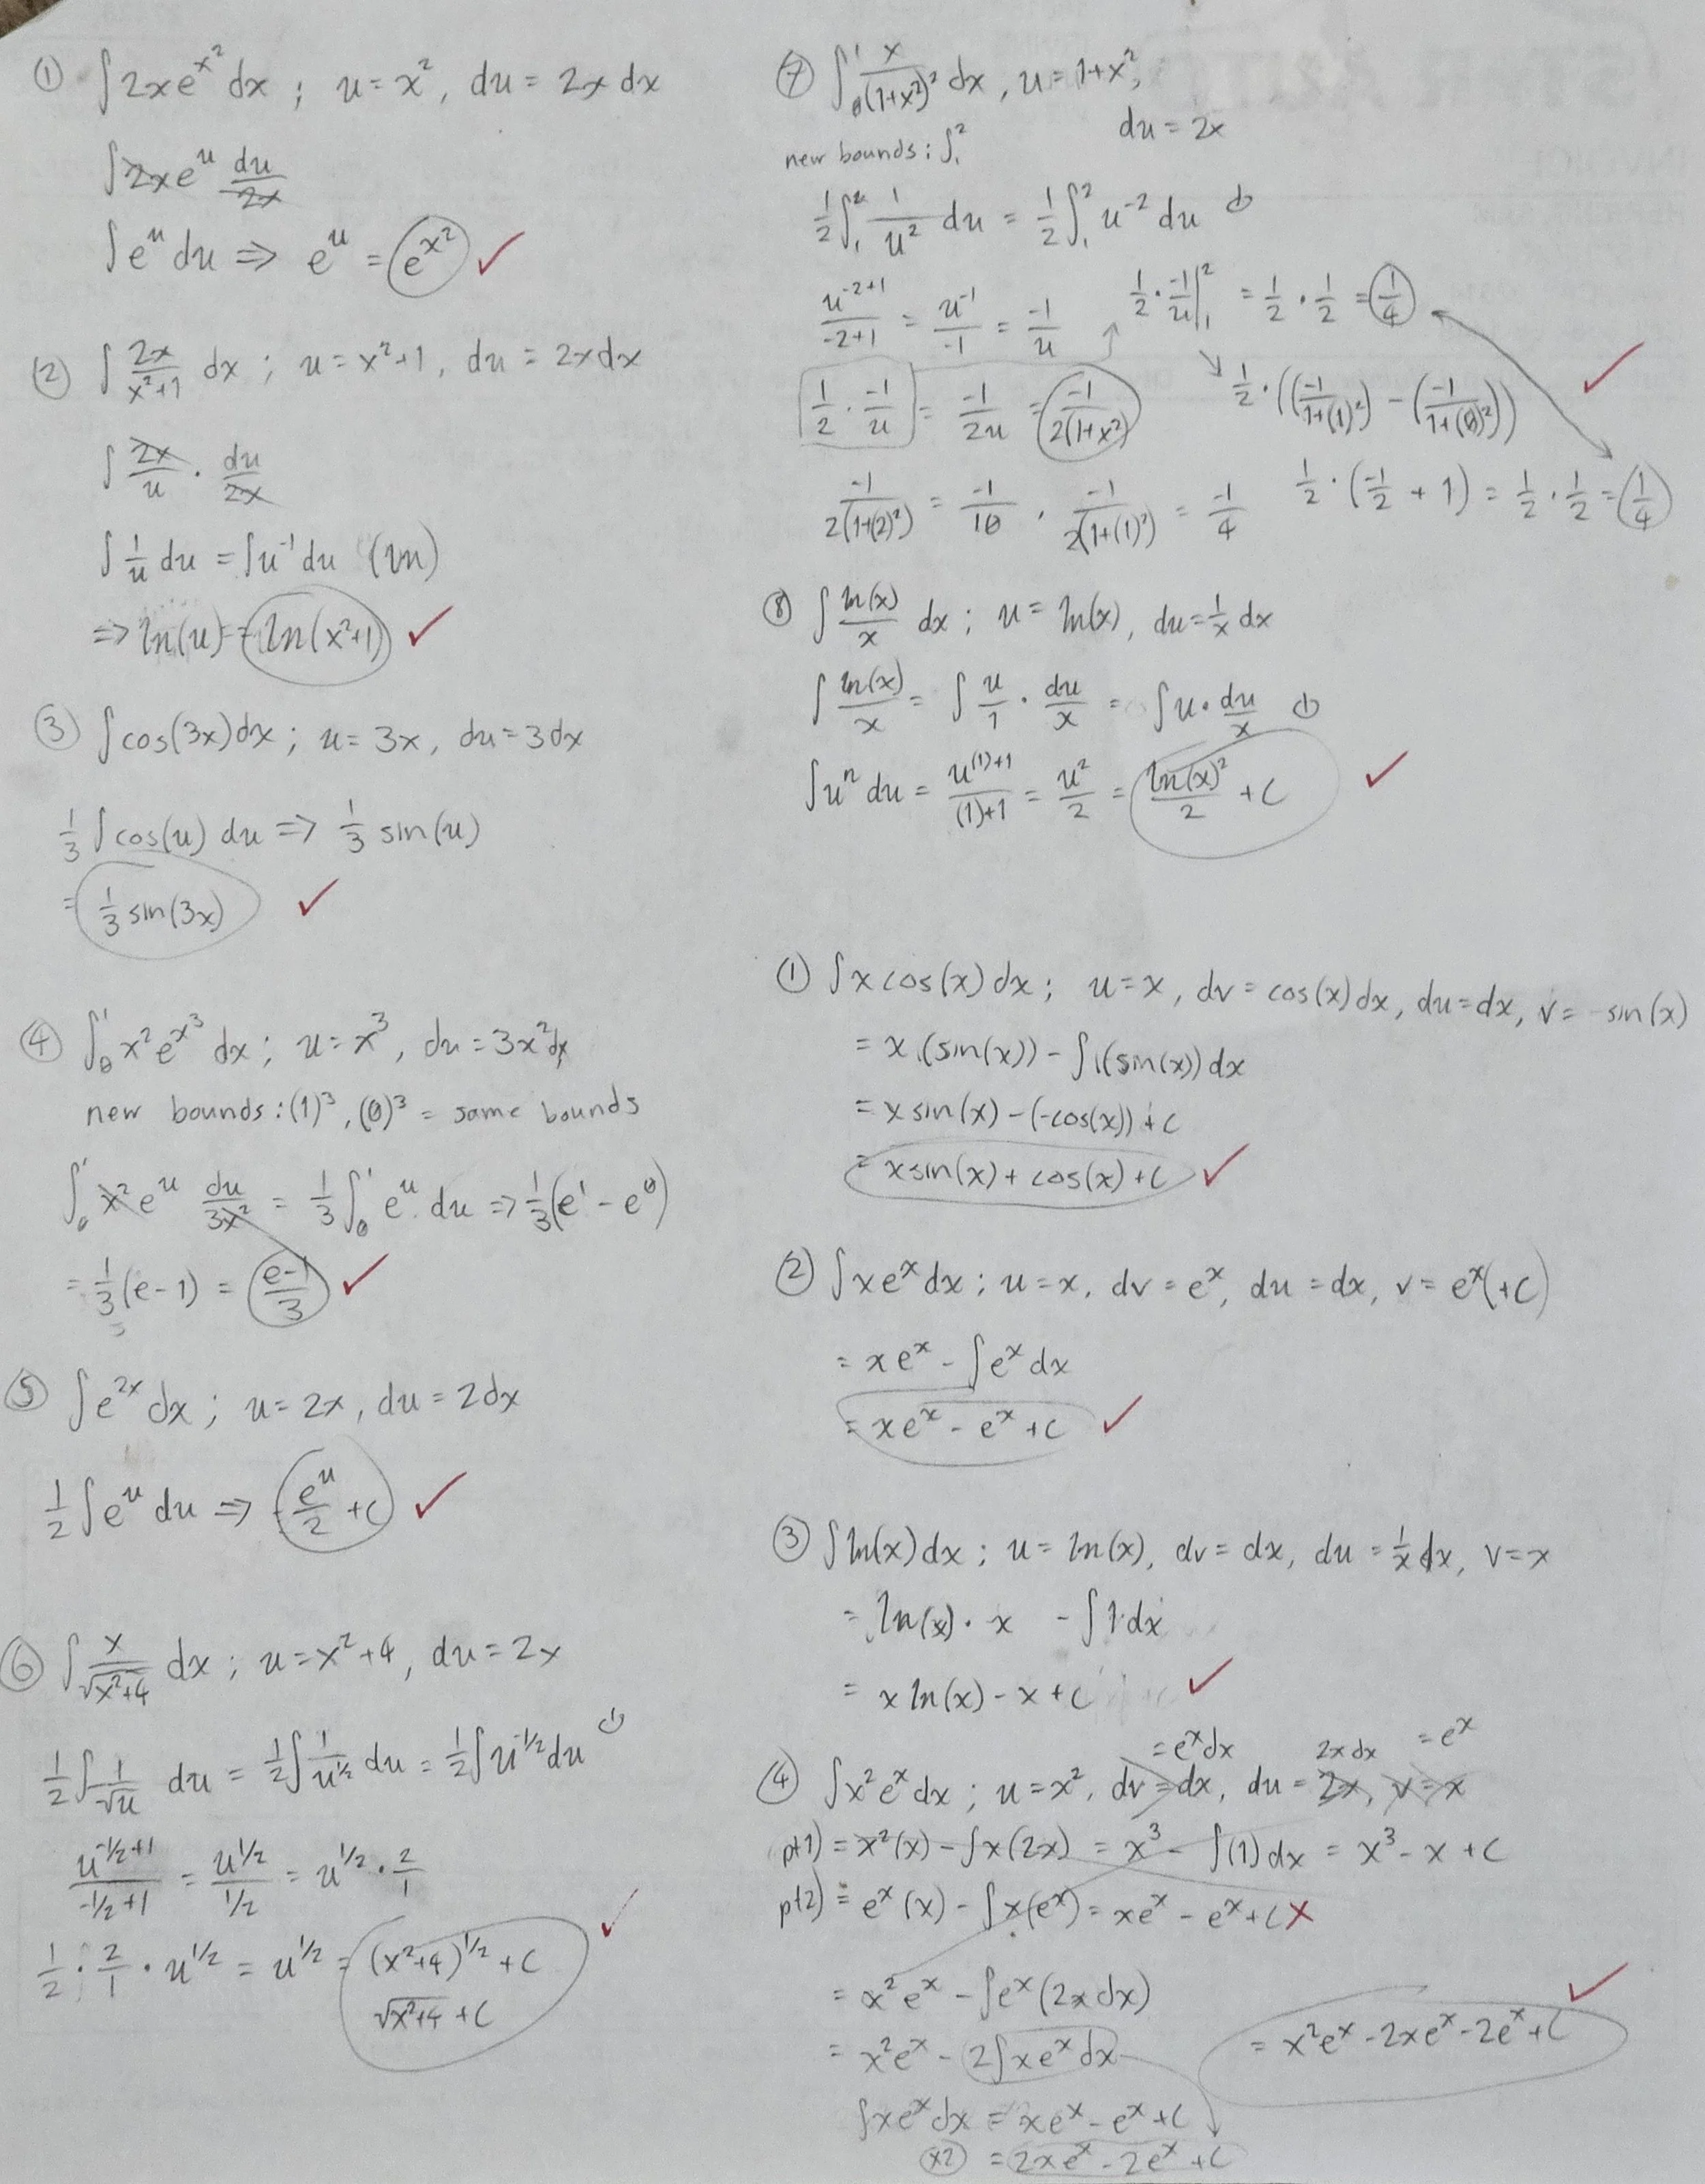 ① ∫2xe^(x²) dx ; u = x², du = 2x dx
∫2xe^u du/2x
∫e^u du ⇒ e^u = e^(x²) ✓
② ∫ 2x/(x²+1) dx ; u = x²+1, du = 2xdx
∫ 2x/u · du/2x
∫ 1/u du = ∫u^-1 du (ln)
⇒ ln(u) = ln(x²+1) ✓
③ ∫cos(3x)dx ; u = 3x, du = 3dx
1/3 ∫cos(u) du ⇒ 1/3 sin(u)
= 1/3 sin(3x) ✓
④ ∫₀¹ x²e^(x³) dx ; u = x³, du = 3x²dx
new bounds: (1)³, (0)³ = same bounds
∫₀¹ x²e^u du/3x² = 1/3 ∫₀¹ e^u du ⇒ 1/3(e¹ - e⁰)
= 1/3(e-1) = (e-1)/3 ✓
⑤ ∫e^(2x) dx ; u = 2x, du = 2dx
1/2 ∫e^u du ⇒ e^u/2 + C ✓
⑥ ∫ x/√(x²+4) dx ; u = x²+4, du = 2x
1/2 ∫ 1/√u du = 1/2 ∫ 1/u^(1/2) du = 1/2 ∫u^(-1/2) du
u^(-1/2+1)/(-1/2+1) = u^(1/2)/(1/2) = u^(1/2) · 2/1
1/2 · 2/1 · u^(1/2) = u^(1/2) = (x²+4)^(1/2) + C ✓
√(x²+4) + C
⑦ ∫₀¹ x/(1+x²)² dx, u = 1+x²,
du = 2x
new bounds: ∫₁²
1/2 ∫₁² 1/u² du = 1/2 ∫₁² u^-2 du
u^(-2+1)/(-2+1) = u^-1/-1 = -1/u
1/2 · -1/u |₁² = 1/2 · 1/2 = 1/4
1/2 · -1/u = -1/2u = -1/(2(1+x²))
1/2 · ((-1/(1+(1)²)) - (-1/(1+(0)²))) ✓
-1/(2(1+(2)²)) = -1/10 , -1/(2(1+(1)²)) = -1/4
1/2 · (-1/2 + 1) = 1/2 · 1/2 = 1/4
⑧ ∫ ln(x)/x dx ; u = ln(x), du = 1/x dx
∫ ln(x)/x = ∫ u/1 · du/x = ∫u · du/x
∫u^n du = u^((1)+1)/((1)+1) = u²/2 = ln(x)²/2 + C ✓
① ∫x cos(x) dx ; u = x, dv = cos(x)dx, du = dx, v = sin(x)
= x(sin(x)) - ∫1(sin(x))dx
= x sin(x) - (-cos(x)) + C
= xsin(x) + cos(x) + C ✓
② ∫xe^x dx ; u = x, dv = e^x, du = dx, v = e^x(+C)
= xe^x - ∫e^x dx
= xe^x - e^x + C ✓
③ ∫ln(x)dx ; u = ln(x), dv = dx, du = 1/x dx, v = x
= ln(x) · x - ∫1 dx
= x ln(x) - x + C ✓
= e^x dx 2x dx = e^x
④ ∫x²e^x dx ; u = x², dv = dx, du = 2x, v = x
pt1) = x²(x) - ∫x(2x) = x³ - ∫(1)dx = x³ - x + C
pt2) = e^x(x) - ∫x(e^x) = xe^x - e^x + C X
= x²e^x - ∫e^x(2xdx)
= x²e^x - 2∫xe^x dx
∫xe^x dx = xe^x - e^x + C
(x2) = 2xe^x - 2e^x + C
= x²e^x - 2xe^x - 2e^x + C ✓